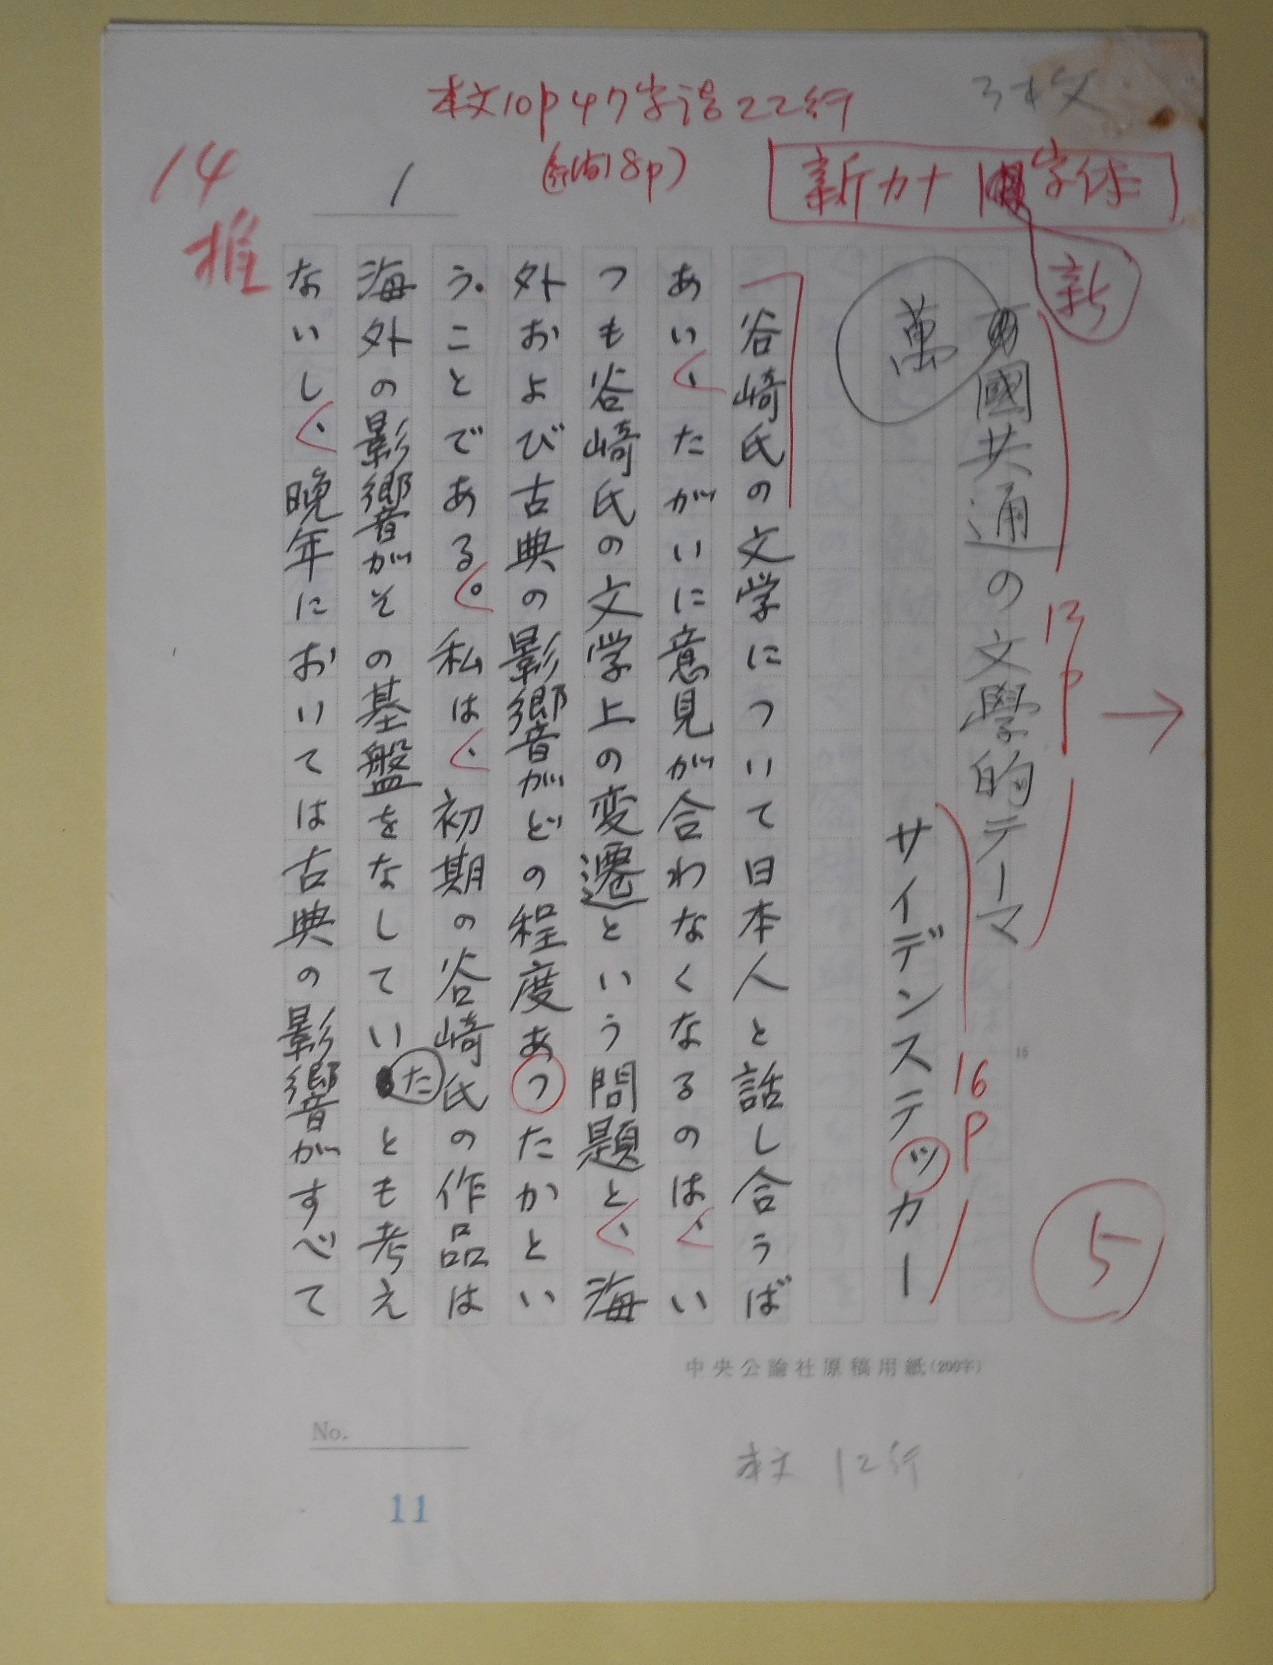 3枚
本文10p47字詰22行
(行間8p)
新カナ 字体
新
14
推
1
萬
國共通の文學的テーマ
12p
サイデンステッカー
16p
5
谷崎氏の文学について日本人と話し合うば
あい、たがいに意見が合わなくなるのは、い
つも谷崎氏の文学上の変遷という問題と、海
外および古典の影響がどの程度あったかとい
う。ことである。私は、初期の谷崎氏の作品は
海外の影響がその基盤をなしていたとも考え
ないし、晩年においては古典の影響がすべて
15
中央公論社原稿用紙(200字)
No.
本文 12行
11